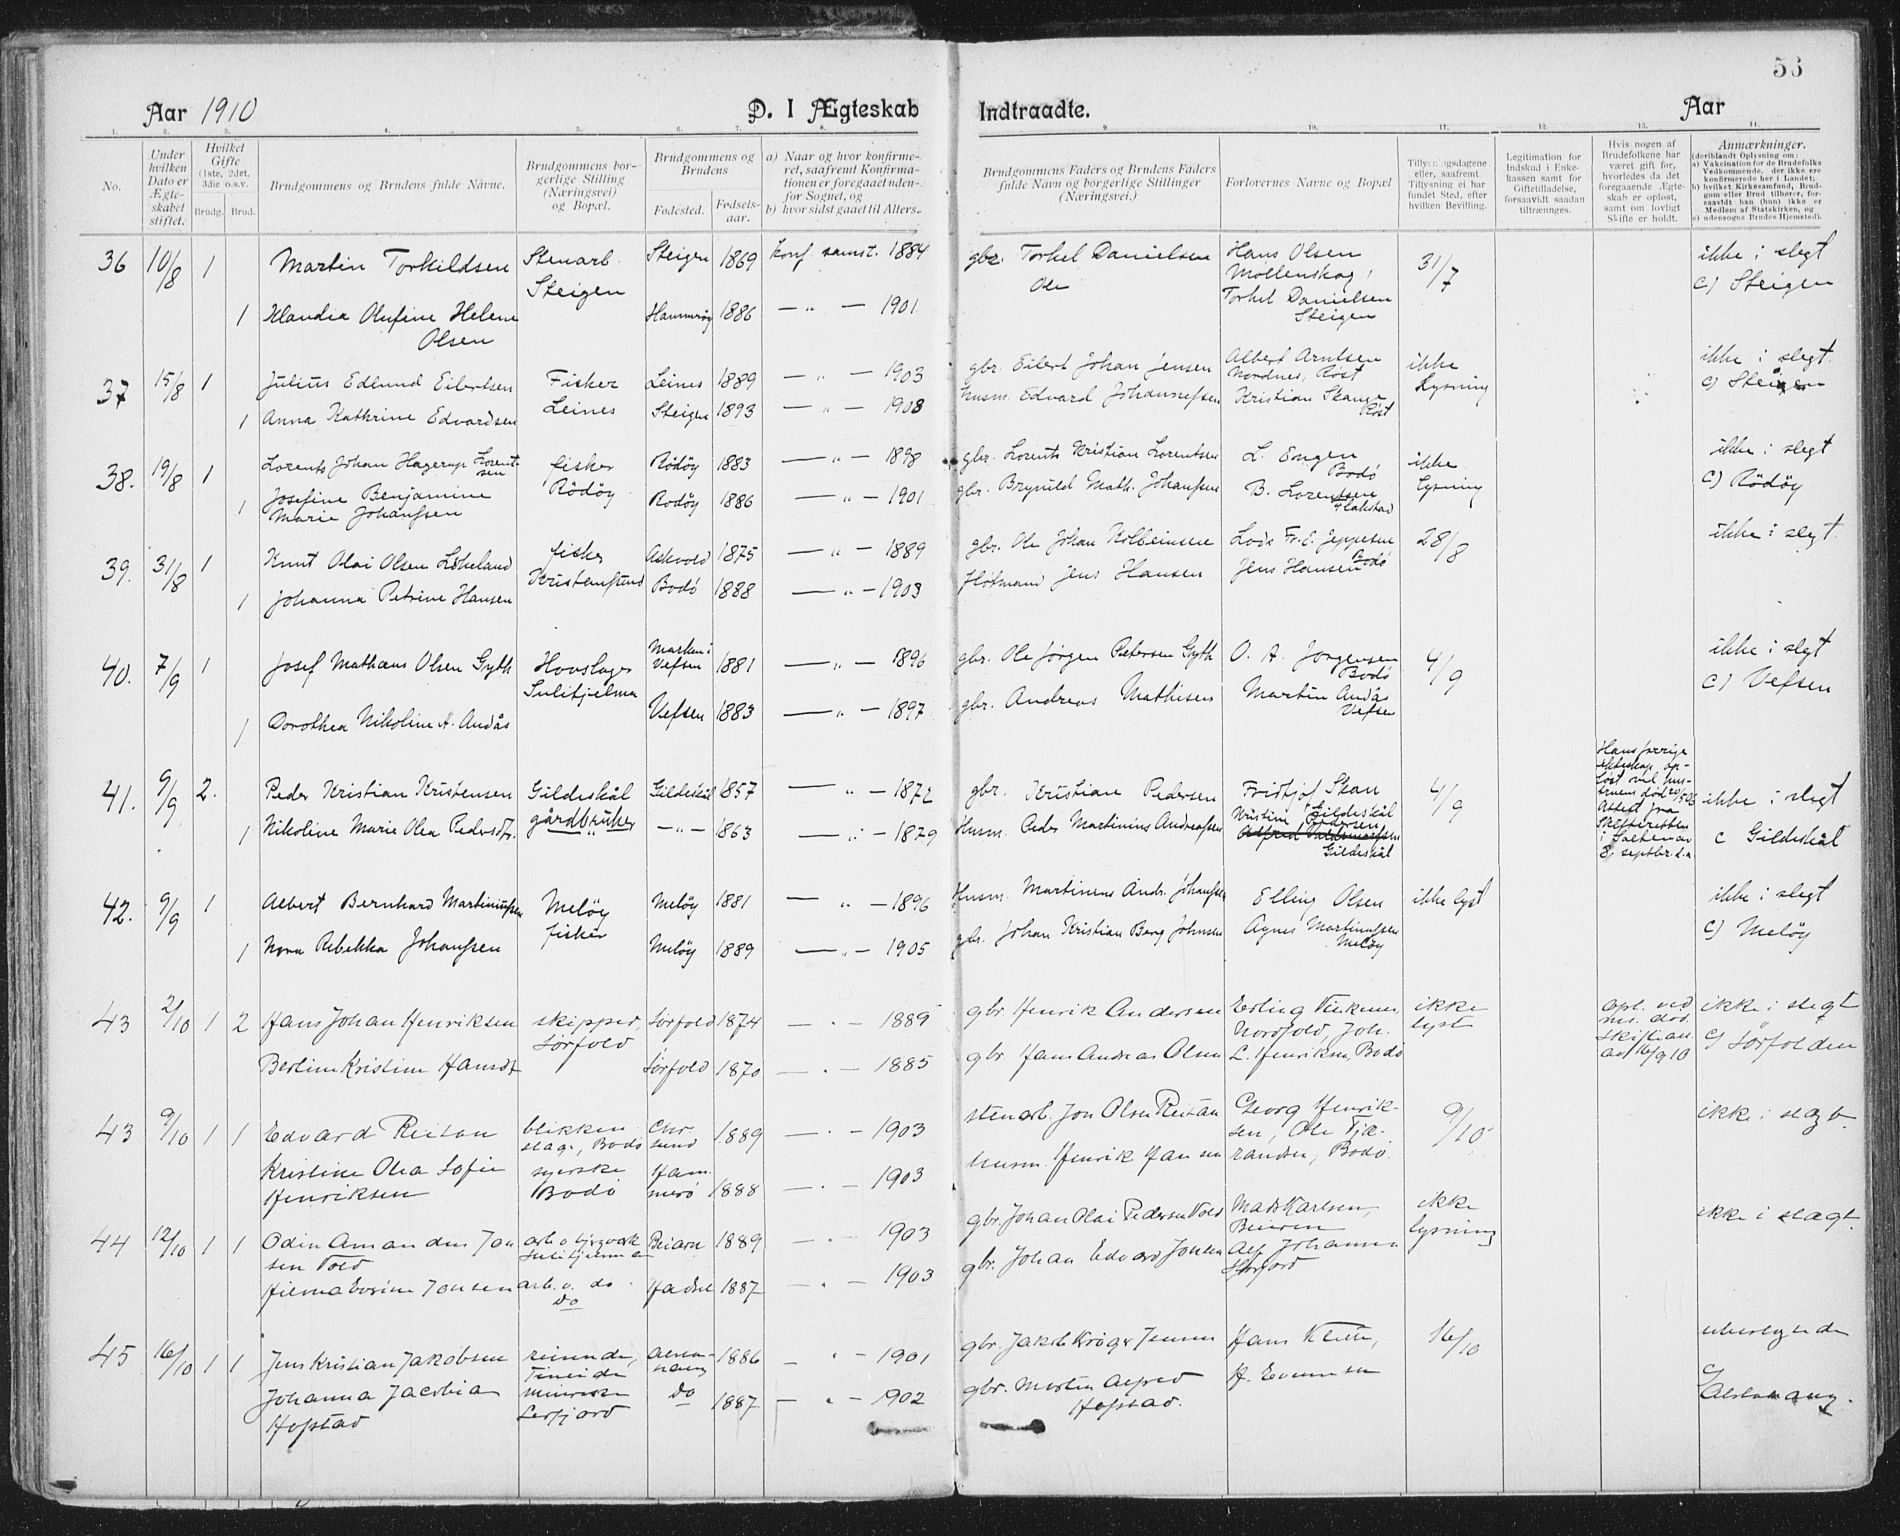 53
Aar 1910 D. I Ægteskab Indtraadte. Aar
1. 2. 3. 4. 5. 6. 7. 8. 9. 10. 11. 12. 13. 14.
No.
Under hvilken Dato er Ægteskabet stiftet.
Hvilket Gifte (1ste, 2det, 3die o.s.v.
Brudg. Brud.
Brudgommens og Brudens fulde Navne.
Brudgommens borgerlige Stilling (Næringsvei) og Bopæl.
Brudgommens og Brudens
Fødested. Fødselsaar.
a) Naar og hvor konfirmeret, saafremt Konfirmationen er foregaaet udenfor Sognet, og
b) hvor sidst gaaet til Alters.
Brudgommens Faders og Brudens Faders fulde Navn og borgerlige Stillinger (Næringsvei.)
Forlovernes Navne og Bopæl
Tillysningsdagene eller, saafremt Tillysning ei har fundet Sted, efter hvilken Bevilling.
Legitimation for Indskud i Enkekassen samt for Giftetilladelse, forsaavidt saadan tiltrænnges.
Hvis nogen af Brudefolkene har været gift for, hvorledes da det foregaaende Ægteskab er opløst, samt om lovligt Skifte er holdt.
Anmærkninger.
(deriblandt Oplysning om:
a) Vakcination for de Brudefolks Vedkommende, der ikke ere konfirmerede her i Landet;
b) hvilket Kirkesamfund, Brudgom eller Brud tilhører, forsaavidt han (hun) ikke er Medlem af Statskirken, og
c) udensogns Brudes Hjemsted).
36 10/8 1 Martin Torkildsen Stenarb. Steigen Steigen 1869 konf samst. 1884 gbr. Torkel Danielsen Hans Olsen Mollenskog, 31/7 ikke i slegt
1 Klaudia Olufine Helene Olsen Hammerøy 1886 — „ — 1901 Ole Torkel Danielsen Steigen c) Steigen
37 15/8 1 Julius Edlund Eilertsen Fisker Leines Leines 1889 — „ — 1903 gbr. Eilert Johan Jensen Albert Arntsen Nordnes, Røst ikke lysning ikke i slegt.
1 Anna Kathrine Edvardsen Steigen 1893 — „ — 1908 husm. Edvard Johannessen Kristian Skange Røst c) Steigen
38. 19/8 1 Lorents Johan Hagerup Lorentsen fisker Rödöy Rödöy 1883 — „ — 1898 gbr. Lorents Kristian Lorentsen L. Engen Bodö ikke lysning ikke i slegt
1 Josefine Benjamine Marie Johanssen Rodöy 1886 — „ — 1901 gbr. Brynild Math. Johanssen B. Lorentsen c) Rödöy
39. 31/8 1 Knut Olai Olsen Lökeland fisker Kristianssund Askvold 1875 — „ — 1889 gbr. Ole Johan Kolbeinsen Lods Fr. E. Jeppesen Bodö 28/8 ikke i slegt.
1 Johanna Petrine Hansen Bodö 1888 — „ — 1903 Jens Hansen Jens Hansen
40. 7/9 1 Josef Mathæus Olsen Gyth Hovslager Sulitjelma Vefsen 1881 — „ — 1896 gbr. Ole Jørgen Petersen Gyth O. A. Jørgensen Bodö 4/9 ikke i slegt
1 Dorothea Nikoline A. Andås Vefsen 1883 — „ — 1897 gbr. Andreas Mathisen Martin Andås Vefsen c) Vefsen
41. 9/9 2. Peder Kristian Kristensen Gildeskål gårdbruker Gildeskål 1857 — „ — 1872 gbr. Kristian Pedersen Fridtjof Skan Gildeskål 4/9 ikke i slegt
1 Nikoline Marie Olea Pedersdtr. — „ — 1863 — „ — 1879 Husm. Peder Martinius Andreassen Kristine Pedersen Gildeskål c Gildeskål
Hans forrige ekteskap opløst ved hustruens død Attest fra Skifteretten i Salten av 8. septbr. d.a.
42. 9/9 1 Albert Bernhard Martinussen Melöy fisker Melöy 1881 — „ — 1896 Husm. Martinus Andr. Johanssen Elling Olsen ikke lyst ikke i slegt
1 Nora Rebekka Johanssen Melöy 1889 — „ — 1905 gbr. Johan Kristian Berg Johnsen Agnes Martinussen Melöy c) Melöy
43 2/10 1 2 Hans Johan Henriksen skipper, Sørfold Sørfold 1874 — „ — 1889 gbr Henrik Andersen Erling Nordfold, Joh. ikke lyst ikke i slegt
Berline Kristine Hansdt Sørfold 1870 — „ — 1885 gbr Hans Andreas Olsen L. Henriksen, Bodö c) Sørfolden
opl. ved død. skifteat. av 16/9 10
43 9/10 1 1 Edvard Reitan blikkenslag., Bodö Chr. sund 1889 — „ — 1903 stenarb. Jon Olsen Reitan Georg Henriksen, Ole 9/10 ikke i slægt.
Kristine Olea Sofie Henriksen syerske Bodö Hammerö 1888 — „ — 1903 husm. Henrik Hansen Bodö.
44 12/10 1 1 Odin Amandus Jonsen Vold arb. Beiarn 1889 — „ — 1903 gbr. Johan Olai Pedersen Vold Mads Karlsen, Beieren ikke lysning ikke i slægt.
Hilma Eveline Jonsen arb. v. do do Hadsel 1887 — „ — 1903 gbr. Johan Edvard Jonsen Alf Johansen
45 16/10 1 1 Jens Kristian Jakobsen reisende, 1886 — „ — 1901 gbr. Jakob Krøger Jensen Hans 16/10 ubeslægtede
Johanna Jacobia Hofstad Leirfjord do 1887 — „ — 1902 gbr. Morten Alfred Hofstad. H. Evensen c) Alstahaug.